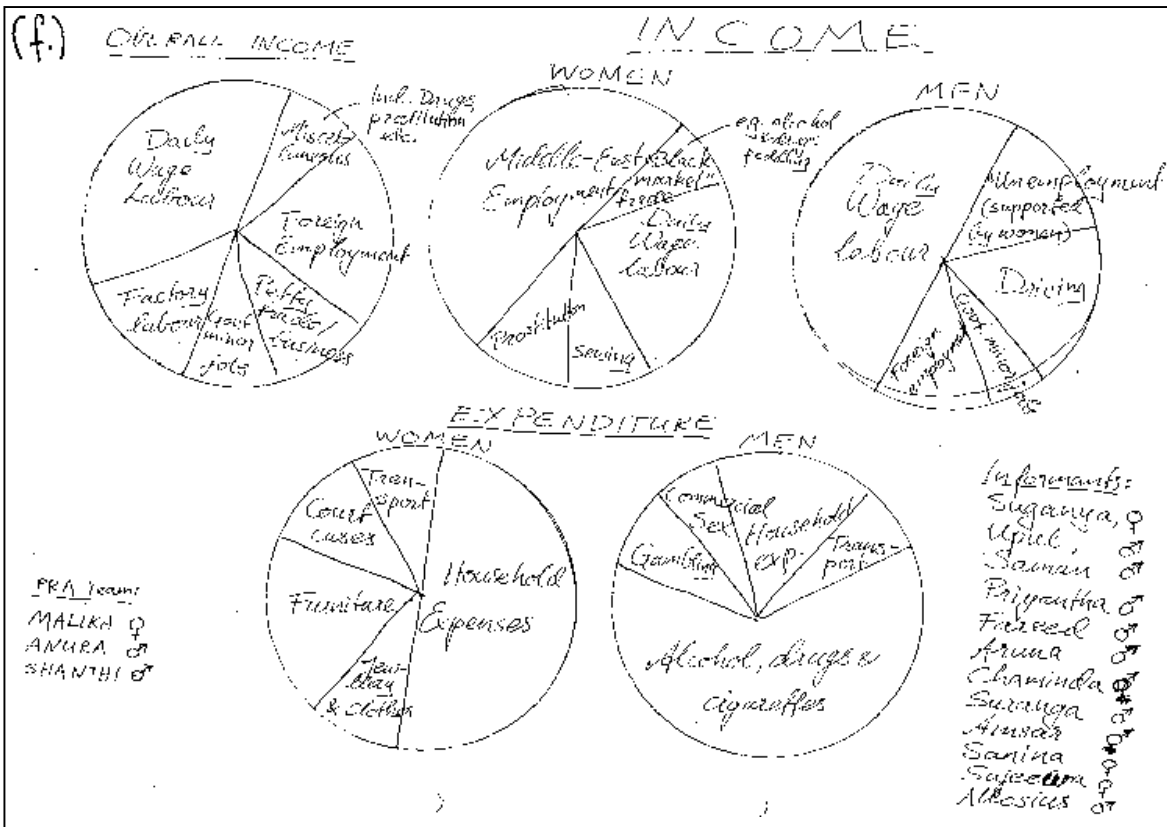 (f.)
OVERALL INCOME
INCOME
Daily
Wage
Labour
Miscel-
laneous
Incl. Drugs,
prostitution
etc.
Foreign
Employment
Petty
trade/
business
Govt
minor
jobs
Factory
labour
WOMEN
Middle-East
Employment
"Black
market"
trade
e.g. alcohol
peddling
Daily
Wage
Labour
Sewing
Prostitution
MEN
Daily
Wage
labour
"Unemployment"
(supported
by women)
Driving
Govt minor jobs
Foreign
employment
EXPENDITURE
WOMEN
Tran-
sport
Court
cases
Furniture
Jew-
& clothes
Household
Expenses
MEN
Gambling
Commercial
Sex
Household
exp.
Trans-
port
Alcohol, drugs &
cigarettes
PRA Team:
MALIKA ♀
ANURA ♂
SHANTHI ♂
Informants:
Suganya, ♀
Upul, ♂
Saman ♂
Priyantha ♂
Fareed ♂
Aruna ♂
Chaminda
Suranga ♂
Amsar
Sanina ♀
♀
Aloosius ♂